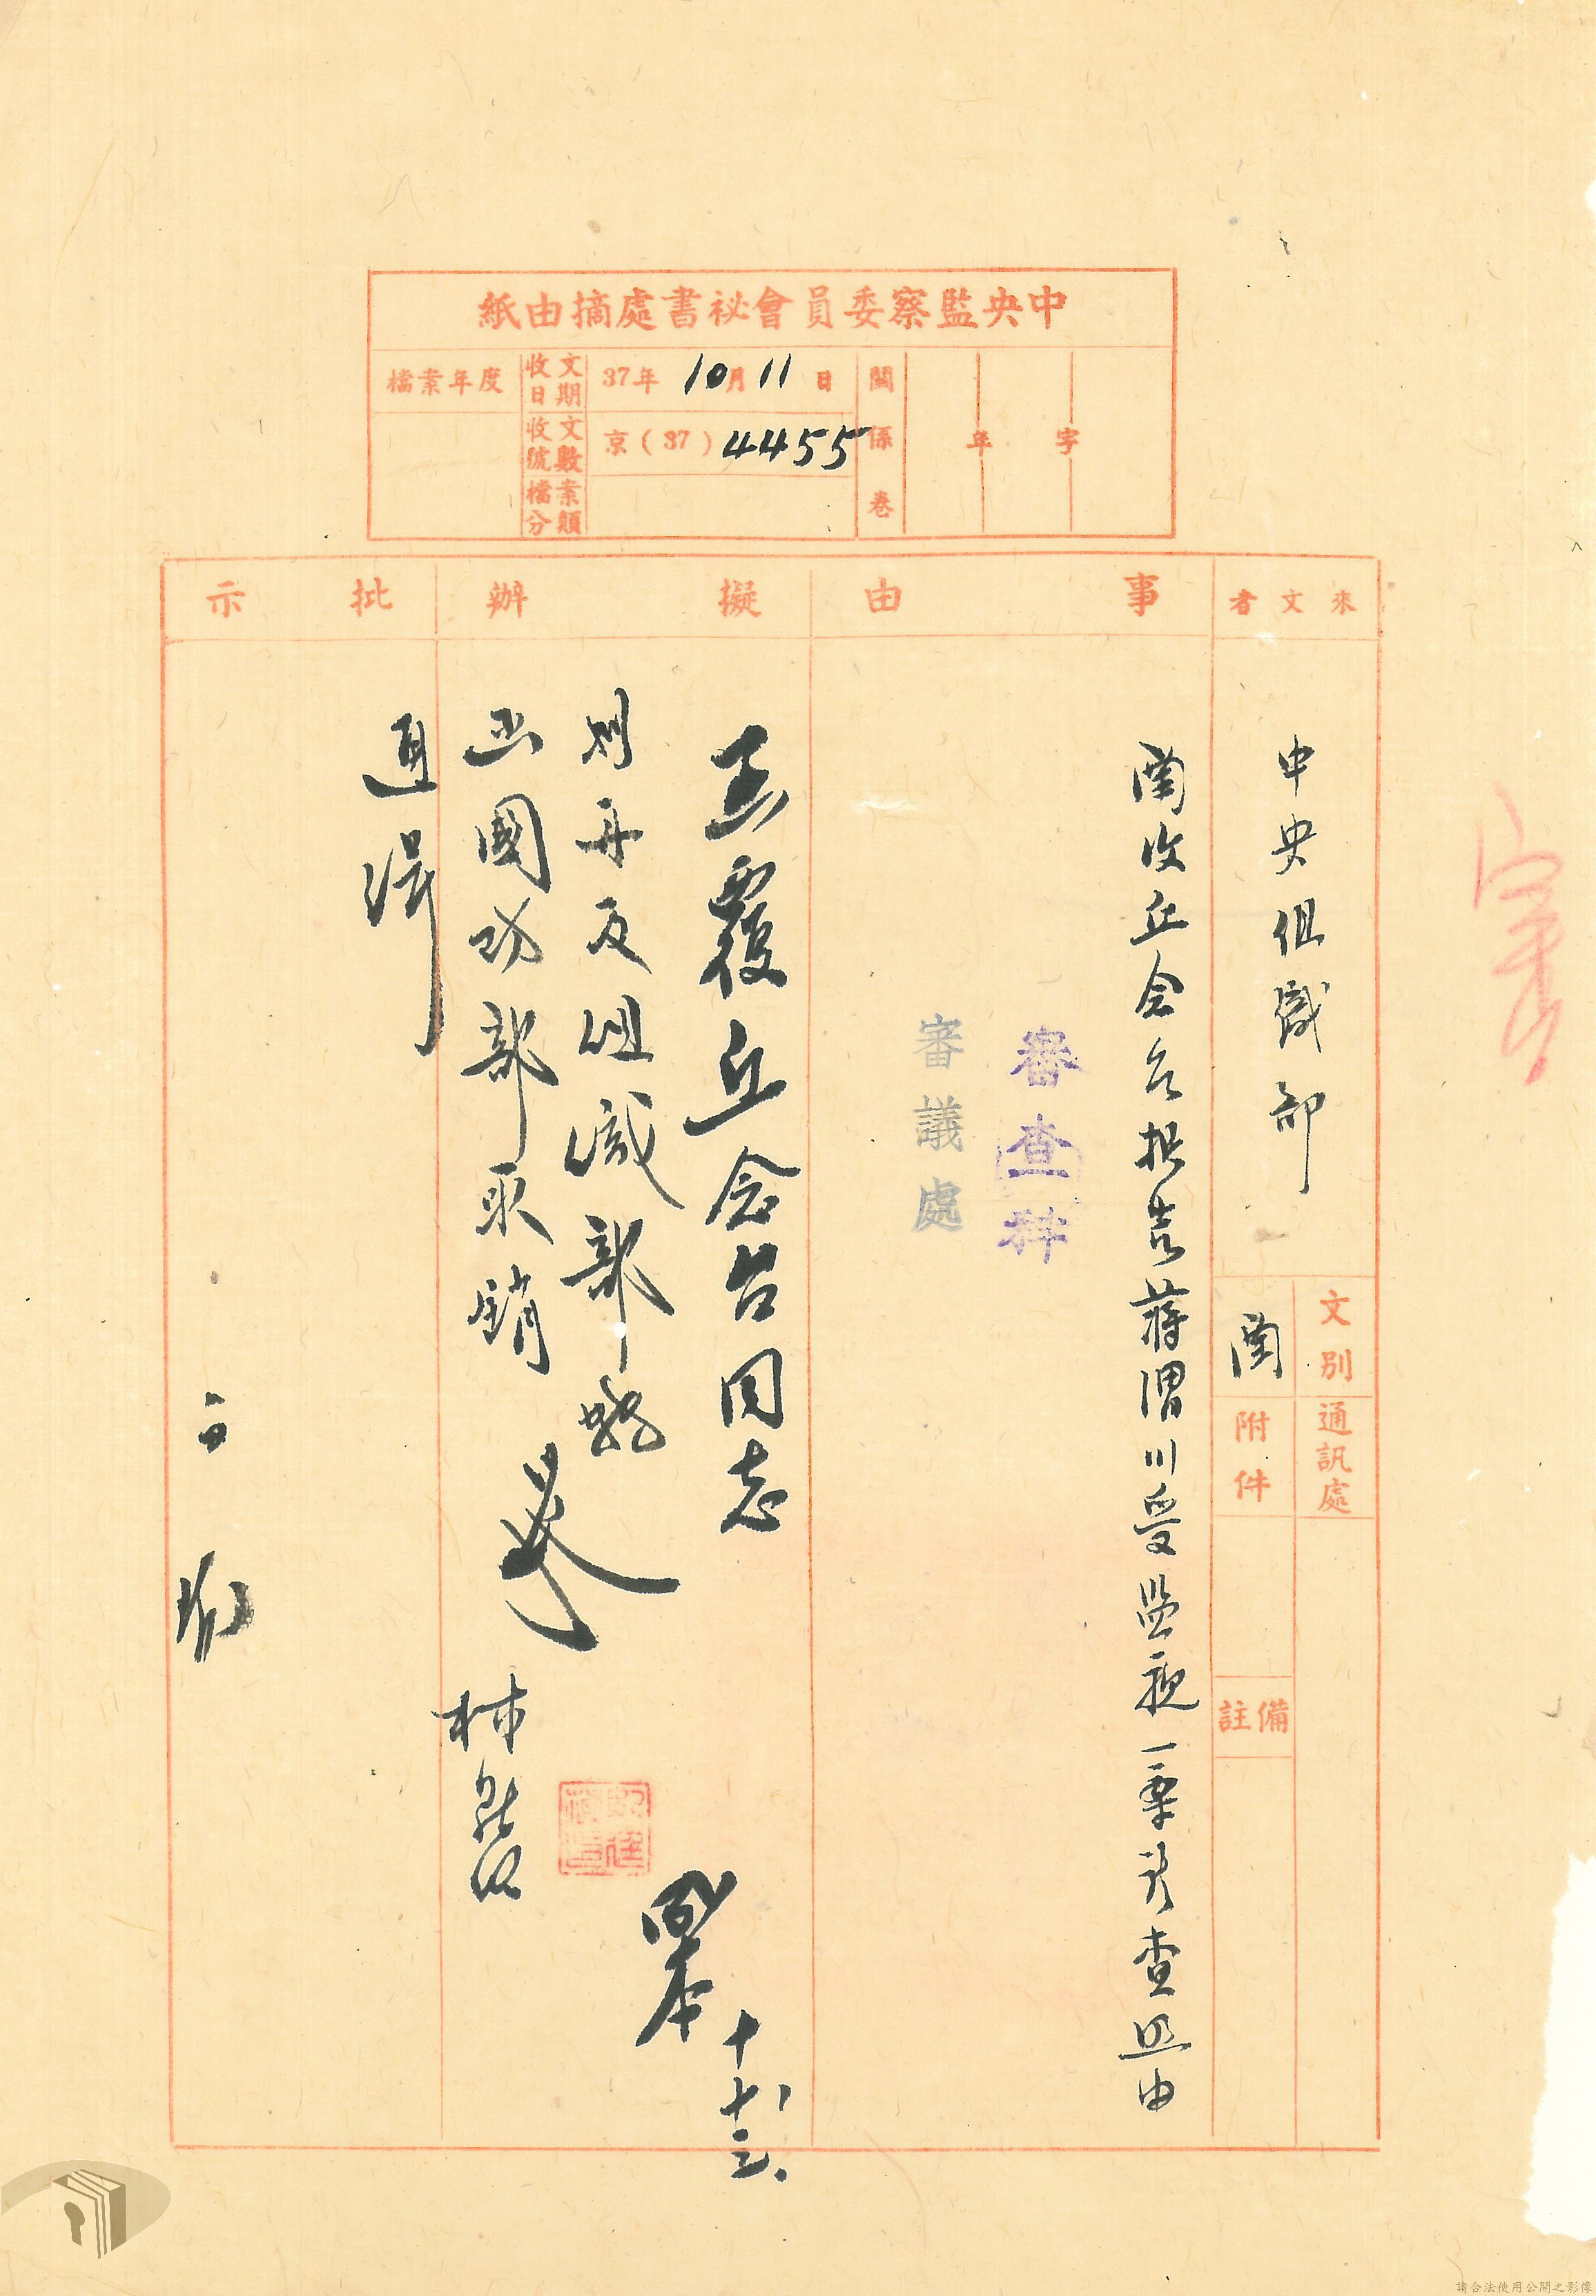 中央監察委員會祕書處摘由紙
檔案年度
收文日期
37年10月11日
收文號數
京(37)4455
檔案分類
關係卷
年
字
來文者
中央組織部
文別
函
通訊處
附件
備註
事由
函收丘念台報告蔣渭川受監視一案請查照由
審查科
審議處
擬辦
函覆丘念台同志
別再及組織部轉
函國防部取銷
通緝
林
十、十三、
批示
請合法使用公開之影像